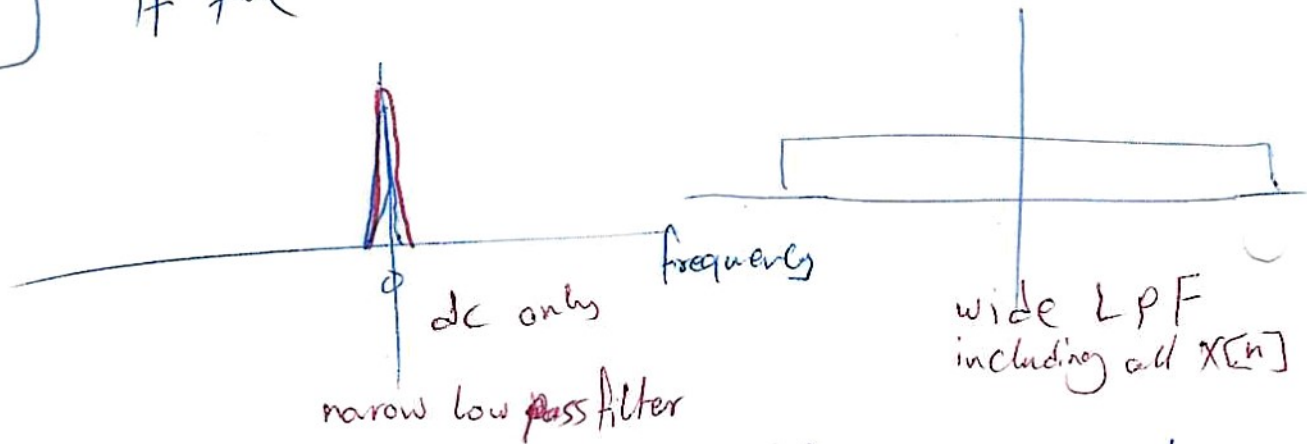 frequency
0
dc only
narow low pass filter
wide LPF
including all X[n]